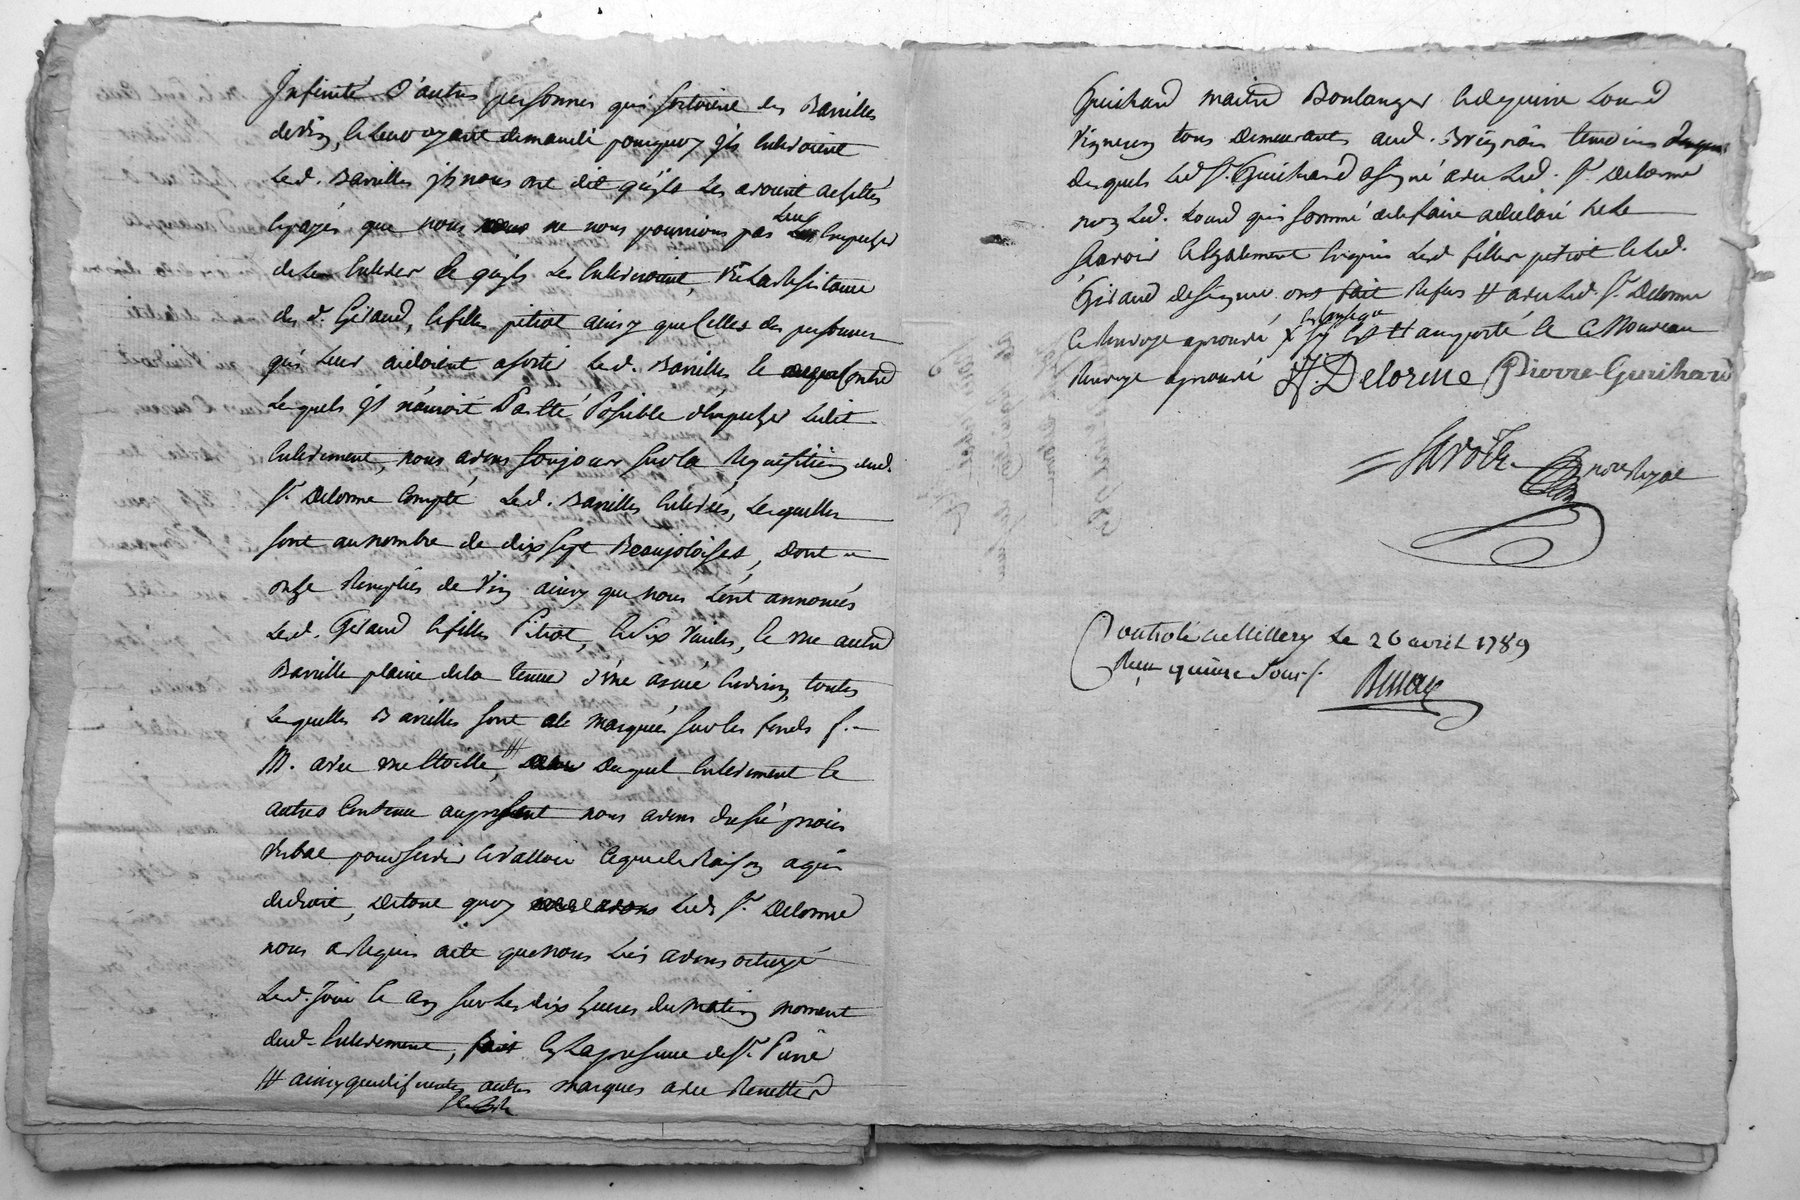 Infinité d'autres personnes qui sortoient des Barrilles
de vin, et leur ayant demandé pourquoy ils enlevoient
lesd. Barrilles ils nous ont dit qu'ils les avoient achettés
et payés que nous nous ne nous pourrions pas leur empecher
de les enlever et qu'ils les enleveroient, vû la Resistance
des d. Giraud, et filles petiot ainsy que celles des personnes
qui leur aidoient a sortir lesd. Barrilles et contre
lesquels il n'auroit pas été possible d'empecher ledit
enlevement, nous avons toujour sur la Requisition dud.
Sr. Delorme compté lesd. Barrilles enlevées, lesquelles
sont au nombre de dix sept Beaujoloises, dont
onze Remplies de vin ainsy que nous l'ont annoncés
lesd. Giraud et filles Petiot, et six vuides, et une autre
Barrille plaine de la tenue d'une asnée de vin, toutes
lesquelles Barrilles sont marquées sur les fonds f.
M. avec une Etoille, # duquel enlevement et
autres contenu au present nous avons dressé procès
verbal pour servir et valloir ce que de Raison a qui
de droit, de tout quoy led. Sr. Delorme
nous a Requis acte que nous luy avons octroyé
led. Jour et an sur les dix heures du matin moment
dud. enlevement, fait en la presence de Sr. Pierre
# ainsy que differentes autres marques avec Renette
Guichard maitre Boulanger et de quinne Lourd
vigneron tous demeurants aud. Brignais temoins
desquels led. Sr. Guichard a signé avec led. Sr. Delorme
non led. Lourd qui sommé de le faire a declaré ne le
scavoir et egalement requis lesd. filles petiot et led.
Giraud de signer ont fait Refus # avec led. Sr. Delorme
ce Renvoye aprouvé # emporté et ce Nouveau
Renvoye aprouvé Delorme Pierre Guichard
nore Royal
Controlé a Millery le 26 avril 1789
Reçu quinze sous